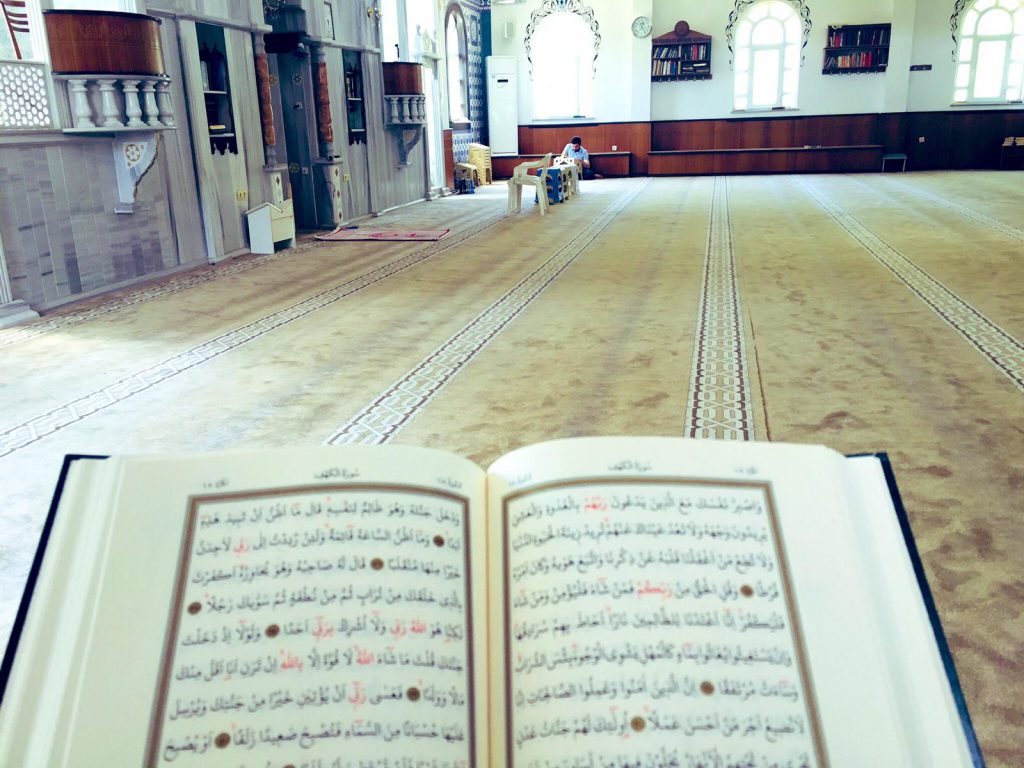 سُورَةُ الْكَهْفِ
وَاصْبِرْ نَفْسَكَ مَعَ الَّذِينَ يَدْعُونَ رَبَّهُمْ بِالْغَدٰوةِ وَالْعَشِيِّ
يُرِيدُونَ وَجْهَهُ وَلَا تَعْدُ عَيْنَاكَ عَنْهُمْ تُرِيدُ زِينَةَ الْحَيٰوةِ الدُّنْيَا
وَلَا تُطِعْ مَنْ اَغْفَلْنَا قَلْبَهُ عَنْ ذِكْرِنَا وَاتَّبَعَ هَوٰيهُ وَكَانَ اَمْرُهُ
فُرُطًا وَقُلِ الْحَقُّ مِنْ رَبِّكُمْ فَمَنْ شَٓاءَ فَلْيُؤْمِنْ وَمَنْ شَٓاءَ
فَلْيَكْفُرْ اِنَّٓا اَعْتَدْنَا لِلظَّالِمِينَ نَارًا اَحَاطَ بِهِمْ سُرَادِقُهَا
وَاِنْ يَسْتَغِيثُوا يُغَاثُوا بِمَٓاءٍ كَالْمُهْلِ يَشْوِي الْوُجُوهَ بِئْسَ الشَّرَابُ
وَسَٓاءَتْ مُرْتَفَقًا اِنَّ الَّذِينَ اٰمَنُوا وَعَمِلُوا الصَّالِحَاتِ اِنَّا
لَا نُضِيعُ اَجْرَ مَنْ اَحْسَنَ عَمَلًا اُو۬لٰٓئِكَ لَهُمْ جَنَّاتُ عَدْنٍ
سُورَةُ الْكَهْفِ
وَدَخَلَ جَنَّتَهُ وَهُوَ ظَالِمٌ لِنَفْسِهِ قَالَ مَٓا اَظُنُّ اَنْ تَبِيدَ هٰذِهِ
اَبَدًا وَمَٓا اَظُنُّ السَّاعَةَ قَٓائِمَةً وَلَئِنْ رُدِدْتُ اِلٰى رَبِّي لَاَجِدَنَّ
خَيْرًا مِنْهَا مُنْقَلَبًا قَالَ لَهُ صَاحِبُهُ وَهُوَ يُحَاوِرُهُٓ اَكَفَرْتَ
بِالَّذِي خَلَقَكَ مِنْ تُرَابٍ ثُمَّ مِنْ نُطْفَةٍ ثُمَّ سَوّٰيكَ رَجُلًا
لٰكِنَّا هُوَ اللّٰهُ رَبِّي وَلَٓا اُشْرِكُ بِرَبِّٓي اَحَدًا وَلَوْلَٓا اِذْ دَخَلْتَ
جَنَّتَكَ قُلْتَ مَا شَٓاءَ اللّٰهُ لَا قُوَّةَ اِلَّا بِاللّٰهِ اِنْ تَرَنِ اَنَا۬ اَقَلَّ مِنْكَ
مَالًا وَوَلَدًا فَعَسٰى رَبِّٓي اَنْ يُؤْتِيَنِ خَيْرًا مِنْ جَنَّتِكَ وَيُرْسِلَ
عَلَيْهَا حُسْبَانًا مِنَ السَّمَٓاءِ فَتُصْبِحَ صَعِيدًا زَلَقًا اَوْ يُصْبِحَ